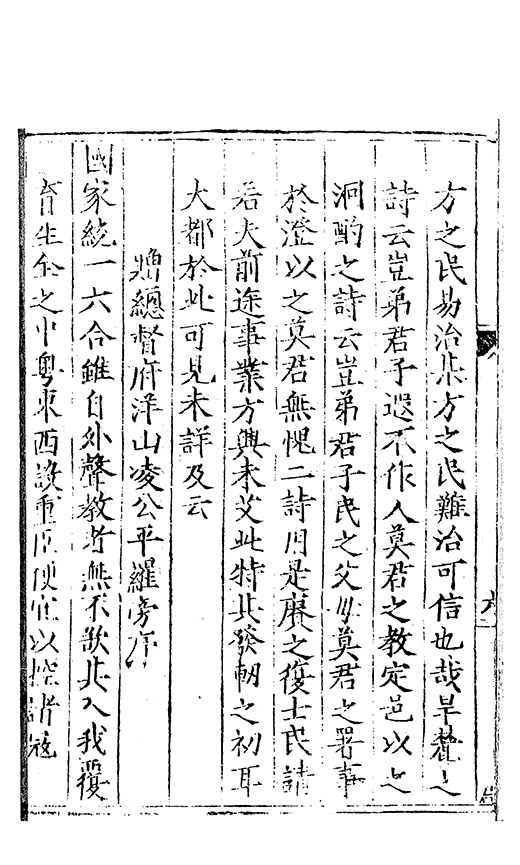 方之民易治某方之民難治可信也哉旱麓之
詩云豈弟君子遐不作人莫君之教定邑以之
泂酌之詩云豈弟君子民之父母莫君之署事
於澄以之莫君無愧二詩用是賡之復士民請
若夫前途事業方興未艾此特其發軔之初耳
大都於此可見未詳及云
將總督府洋山凌公平羅旁序
國家統一六合雖自外聲教者無不欲其入我覆
育生全之中粵東西設重臣便宜以控諸寇
六